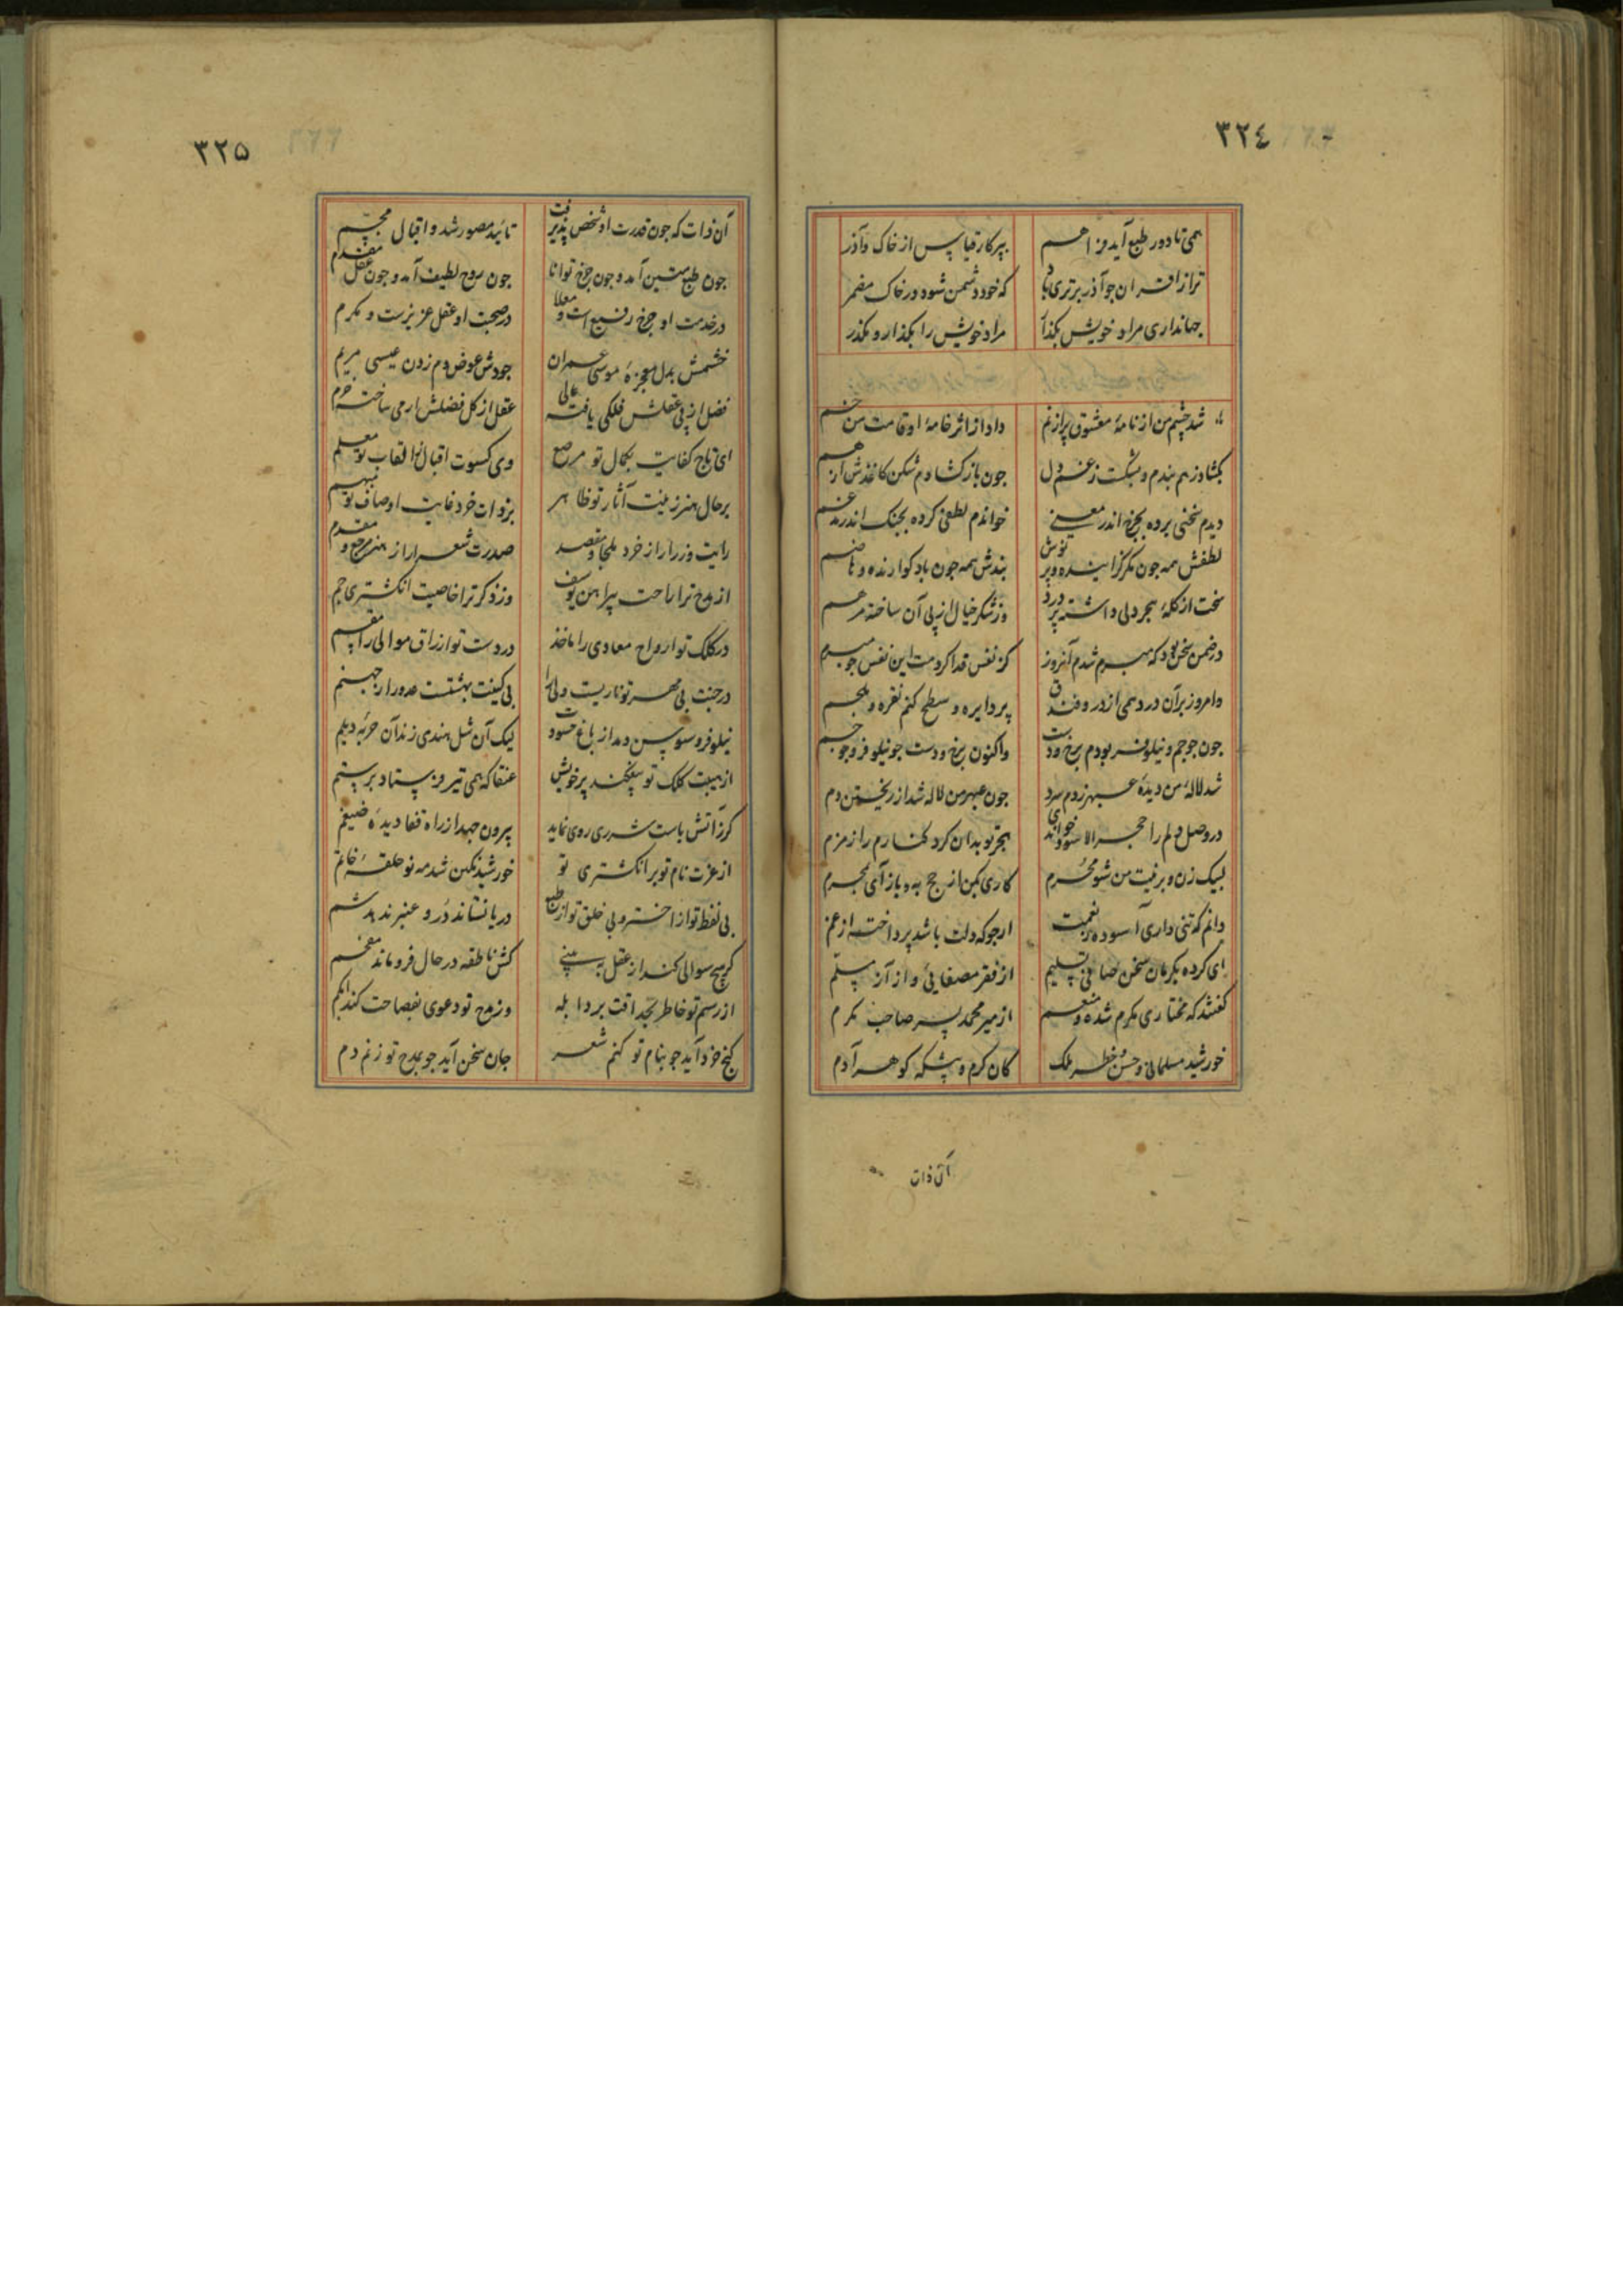 ٣٢٤
همی تا دور طبع آید فراهم
بپرکار قیاپس از خاک وآذر
ترا ز اقران جو آذر برتری باد
که خود دشمن شود در خاک مضمر
جهانداری مراد خویش بکذار
مراد خویش را بکذار و بکذر
شد چشم من از نامهٔ معشوق پر از نم
داد از اثر خامهٔ او قامت من خم
بکشاد ز هم بندم و بشکست ز غم دل
جون باز کشادم شکن کاغذش از هم
دیدم سخنی برده بجرخ اندر معنی
خواندم لطفی کرده بجنک اندر مدغم
لطفش همه جون مکر کزاینده و پر نوش
بندش همه جون باد کوارنده و هاضم
سخت از کلهٔ هجر دلی داشته پر درد
وز شکر خیال از پی آن ساخته مرهم
در ضمن سخن بود که مبرم شدم آنروز
کز نفس فدا کردمت این نفس جو مبرم
وامروز بر آن در دهمی از در و فندق
پر دایره و سطح کنم نقره و ملحم
جون جوجم و نیلوفر بودم برخ ودت
واکنون برخ ودست جو نیلوفر وجوجم
شد لالهٔ من دیدهٔ عبهر ز دم سرد
جون عبهر من لاله شد از ریختن دم
در وصل دلم را حجر الاسود خوانی
هجر تو بدان کرد کنارم را زمزم
لبیک زن و بر نیت من شو محرم
کاری بکن از حج به و باز آی بمحرم
دانم که تنی داری آسوده بنعمت
ارجو که دلت باشد پرداخته از غم
ای کرده بکرمان سخن صافی تسلیم
از فقر مصفایی و از آز مسلم
کفتند که مختاری مکرم شده و منعم
از میر محمد پسر صاحب مکرم
خورشید مسلمانی و حسن و خطر ملک
کان کرم و پشکه کوهر آدم
آن ذات
٣٢٥
آن ذات که جون قدرت او شخص پذیرفت
تائید مصور شد و اقبال مجسم
جون طبع متین آمد و جون جرخ توانا
جون روح لطیف آمد و جون عقل مقدم
در خدمت او جرخ رفیع است و معلا
در صحبت او عقل عزیزست و مکرم
خشمش بدل معجزهٔ موسی عمران
جودش عوض دم زدن عیسی مریم
فضل از پی عقلش فلکی یافته عالی
عقل از کل فضلش ارمی ساخته خرم
ای تاج کفایت بکمال تو مرصع
وی کسوت اقبال بالقاب تو معلم
بر حال هنر زینت آثار تو ظاهر
بر ذات خرد غایت اوصاف تو مبهم
رایت وزرا را ز خرد ملجا و مقصد
صدرت شعرا را ز هنر مرجع و مقدم
از مدح ترا راحت پیراهن یوسف
وز ذکر ترا خاصیت انکشتری جم
در کلک تو ارواح معادی را ماخذ
در دست تو ارزاق موالی را مقسم
در جنت بی مهر تو ناریست ولی را
بی کینت بهشتست عدو را ز جهنم
نیلوفر و سوسن دمد از باغ حسودت
لیک آن شل هندی زند آن حربهٔ دیلم
از هیبت کلک تو بیفکند پر خویش
عنقا که همی تیر و ز بستاد بر ستم
کر ز آتش باست شرری روی نماید
بیرون جهد از راه قفا دیدهٔ ضیغم
از عزت نام تو بر انکشتری تو
خورشید نکین شد مه نو حلقهٔ خاتم
بی لفظ تو از اختر و بی خلق تو از طبع
دریا نشاند در و عنبر ندهد شم
کر هیچ سوالی کند از عقل به بینی
کش ناطقه در حال فرو ماند مفحم
از رسم تو خاطر بحداقت برد ابله
وز مدح تو دعوی بفصاحت کند ابکم
کنج خرد آید جو بنام تو کنم شعر
جان سخن آید جو بمدح تو زنم دم